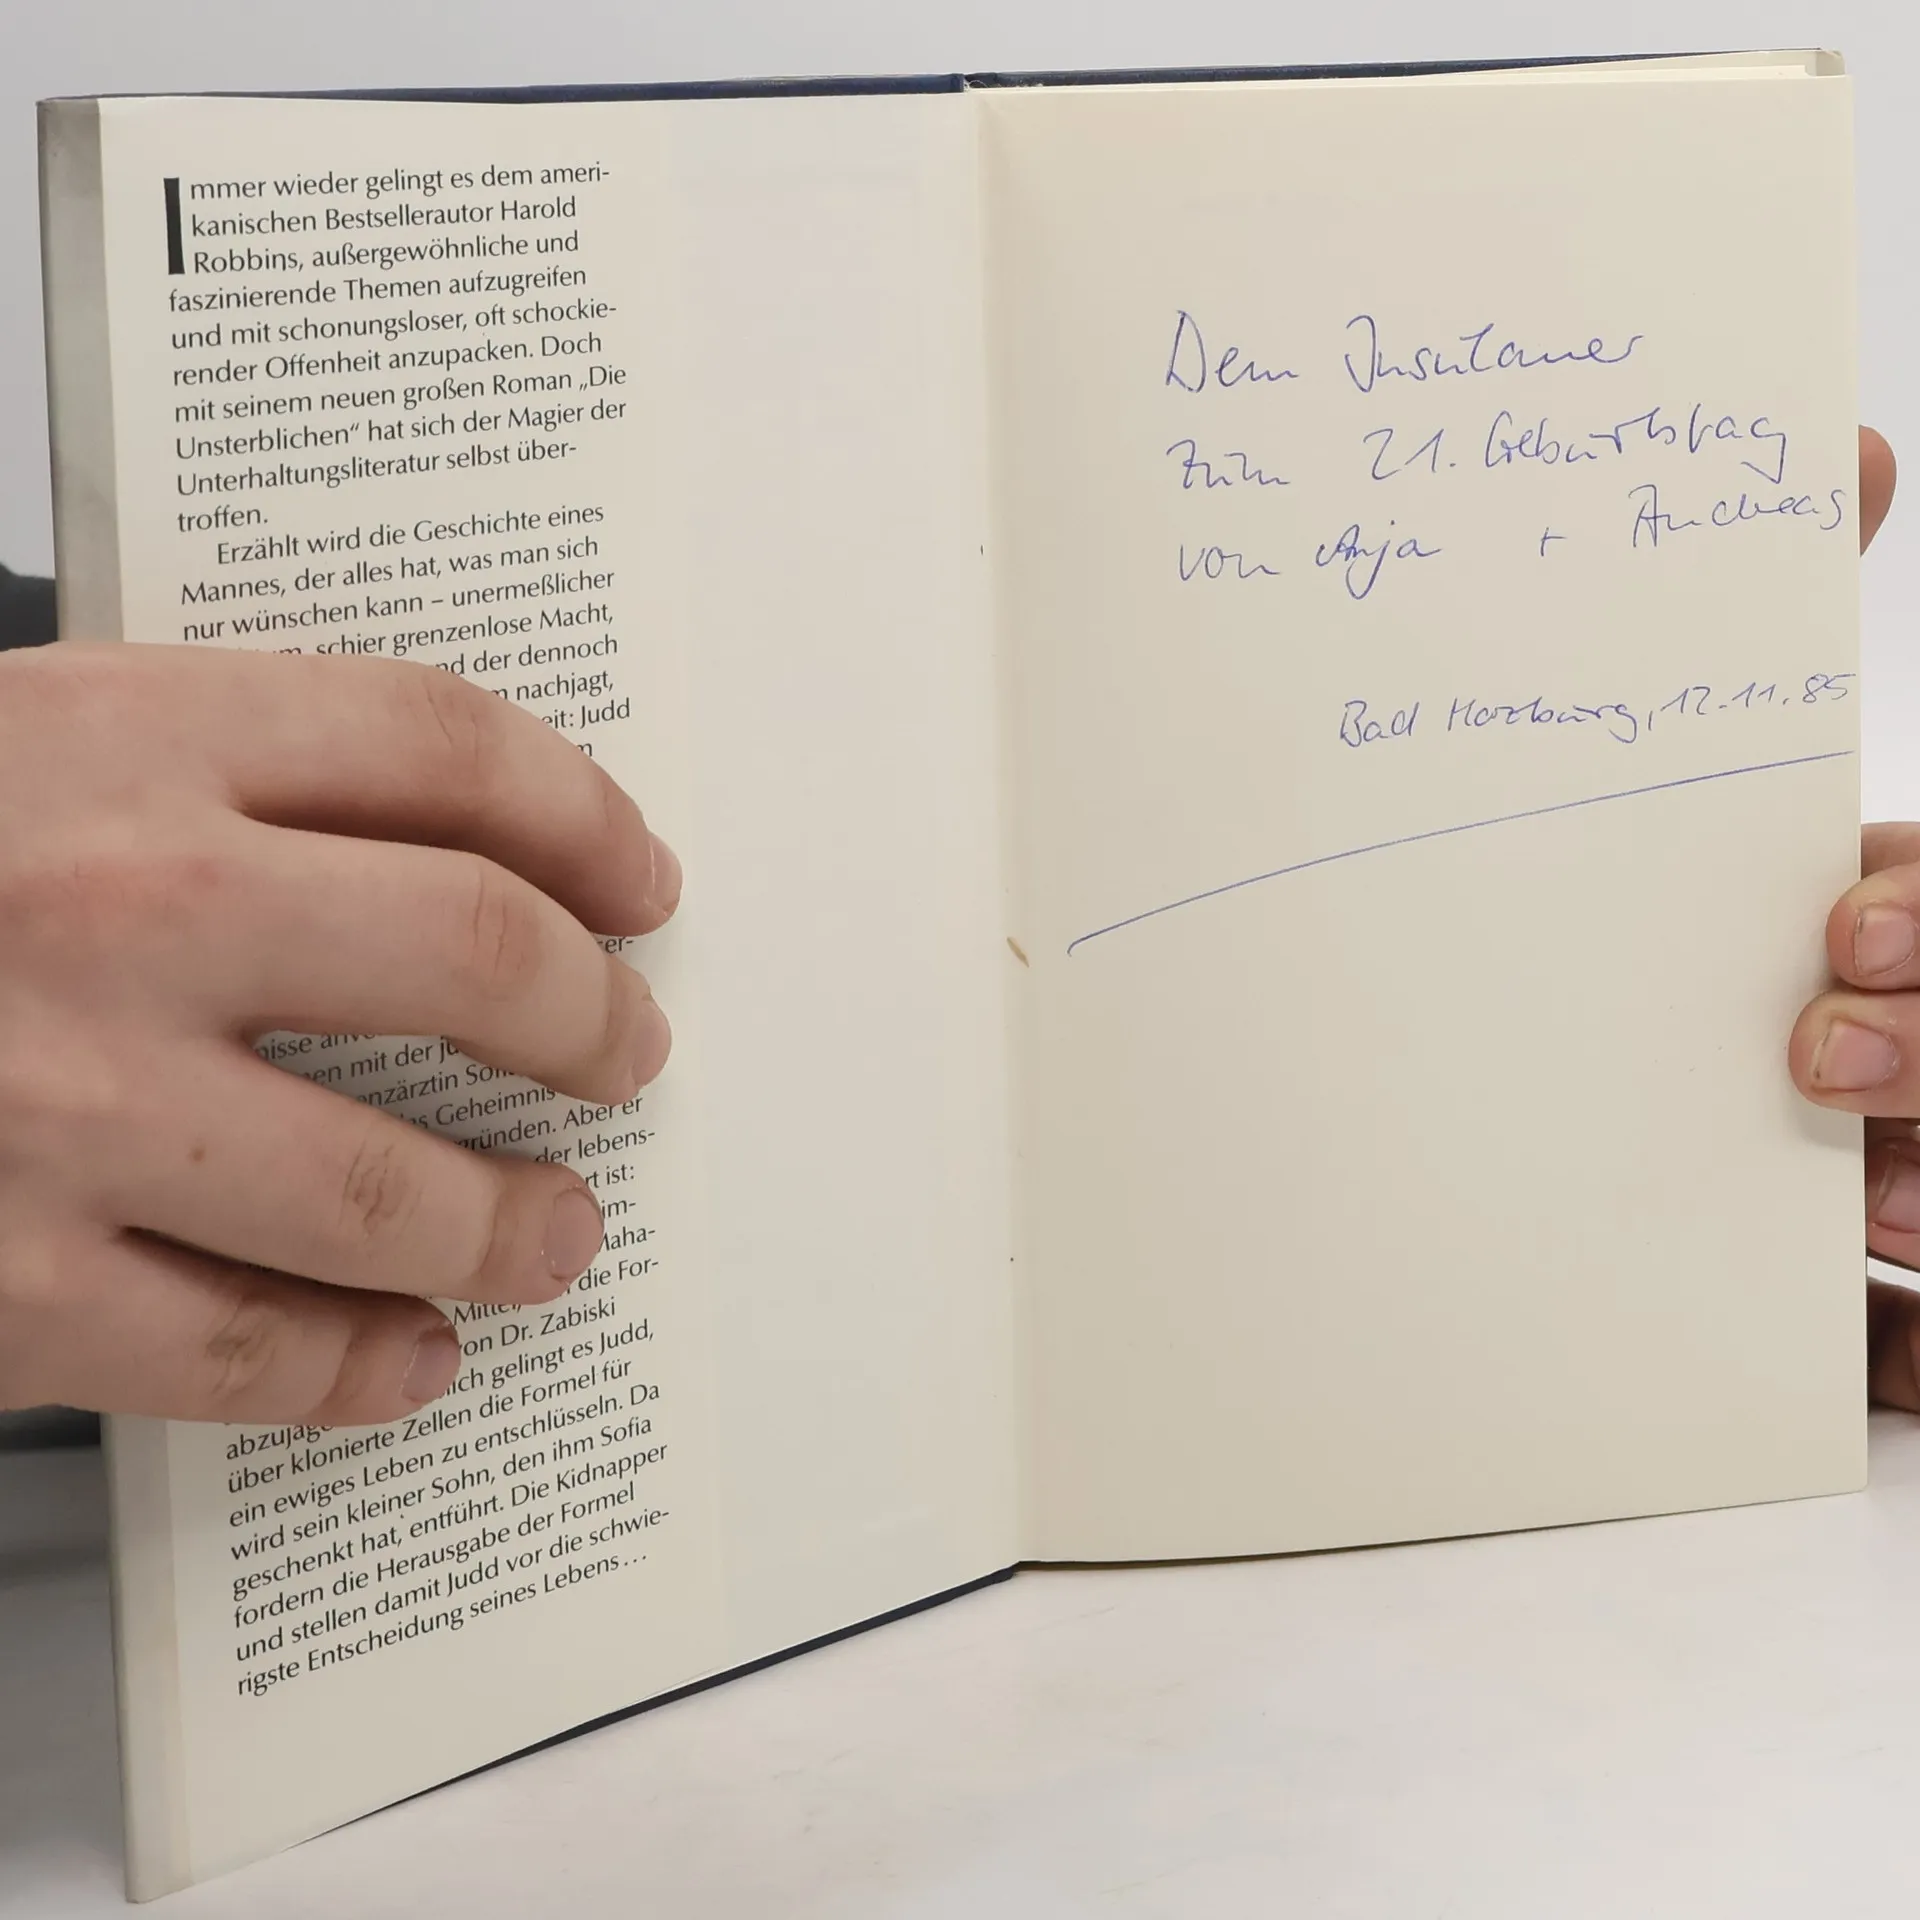 Immer wieder gelingt es dem ameri-
kanischen Bestsellerautor Harold
Robbins, außergewöhnliche und
faszinierende Themen aufzugreifen
und mit schonungsloser, oft schockie-
render Offenheit anzupacken. Doch
mit seinem neuen großen Roman „Die
Unsterblichen“ hat sich der Magier der
Unterhaltungsliteratur selbst über-
troffen.
Erzählt wird die Geschichte eines
Mannes, der alles hat, was man sich
nur wünschen kann – unermeßlicher
schier grenzenlose Macht,
der dennoch
nachjagt,
Judd
mit der
Geheimnis
Aber er
der lebens-
ist:
die For-
Dr. Zabiski
gelingt es Judd,
über klonierte Zellen die Formel für
ein ewiges Leben zu entschlüsseln. Da
wird sein kleiner Sohn, den ihm Sofia
geschenkt hat, entführt. Die Kidnapper
fordern die Herausgabe der Formel
und stellen damit Judd vor die schwie-
rigste Entscheidung seines Lebens...
Dem Insulaner
zum 21. Geburtstag
von Anja + Andreas
Bad Harzburg, 12.11.85